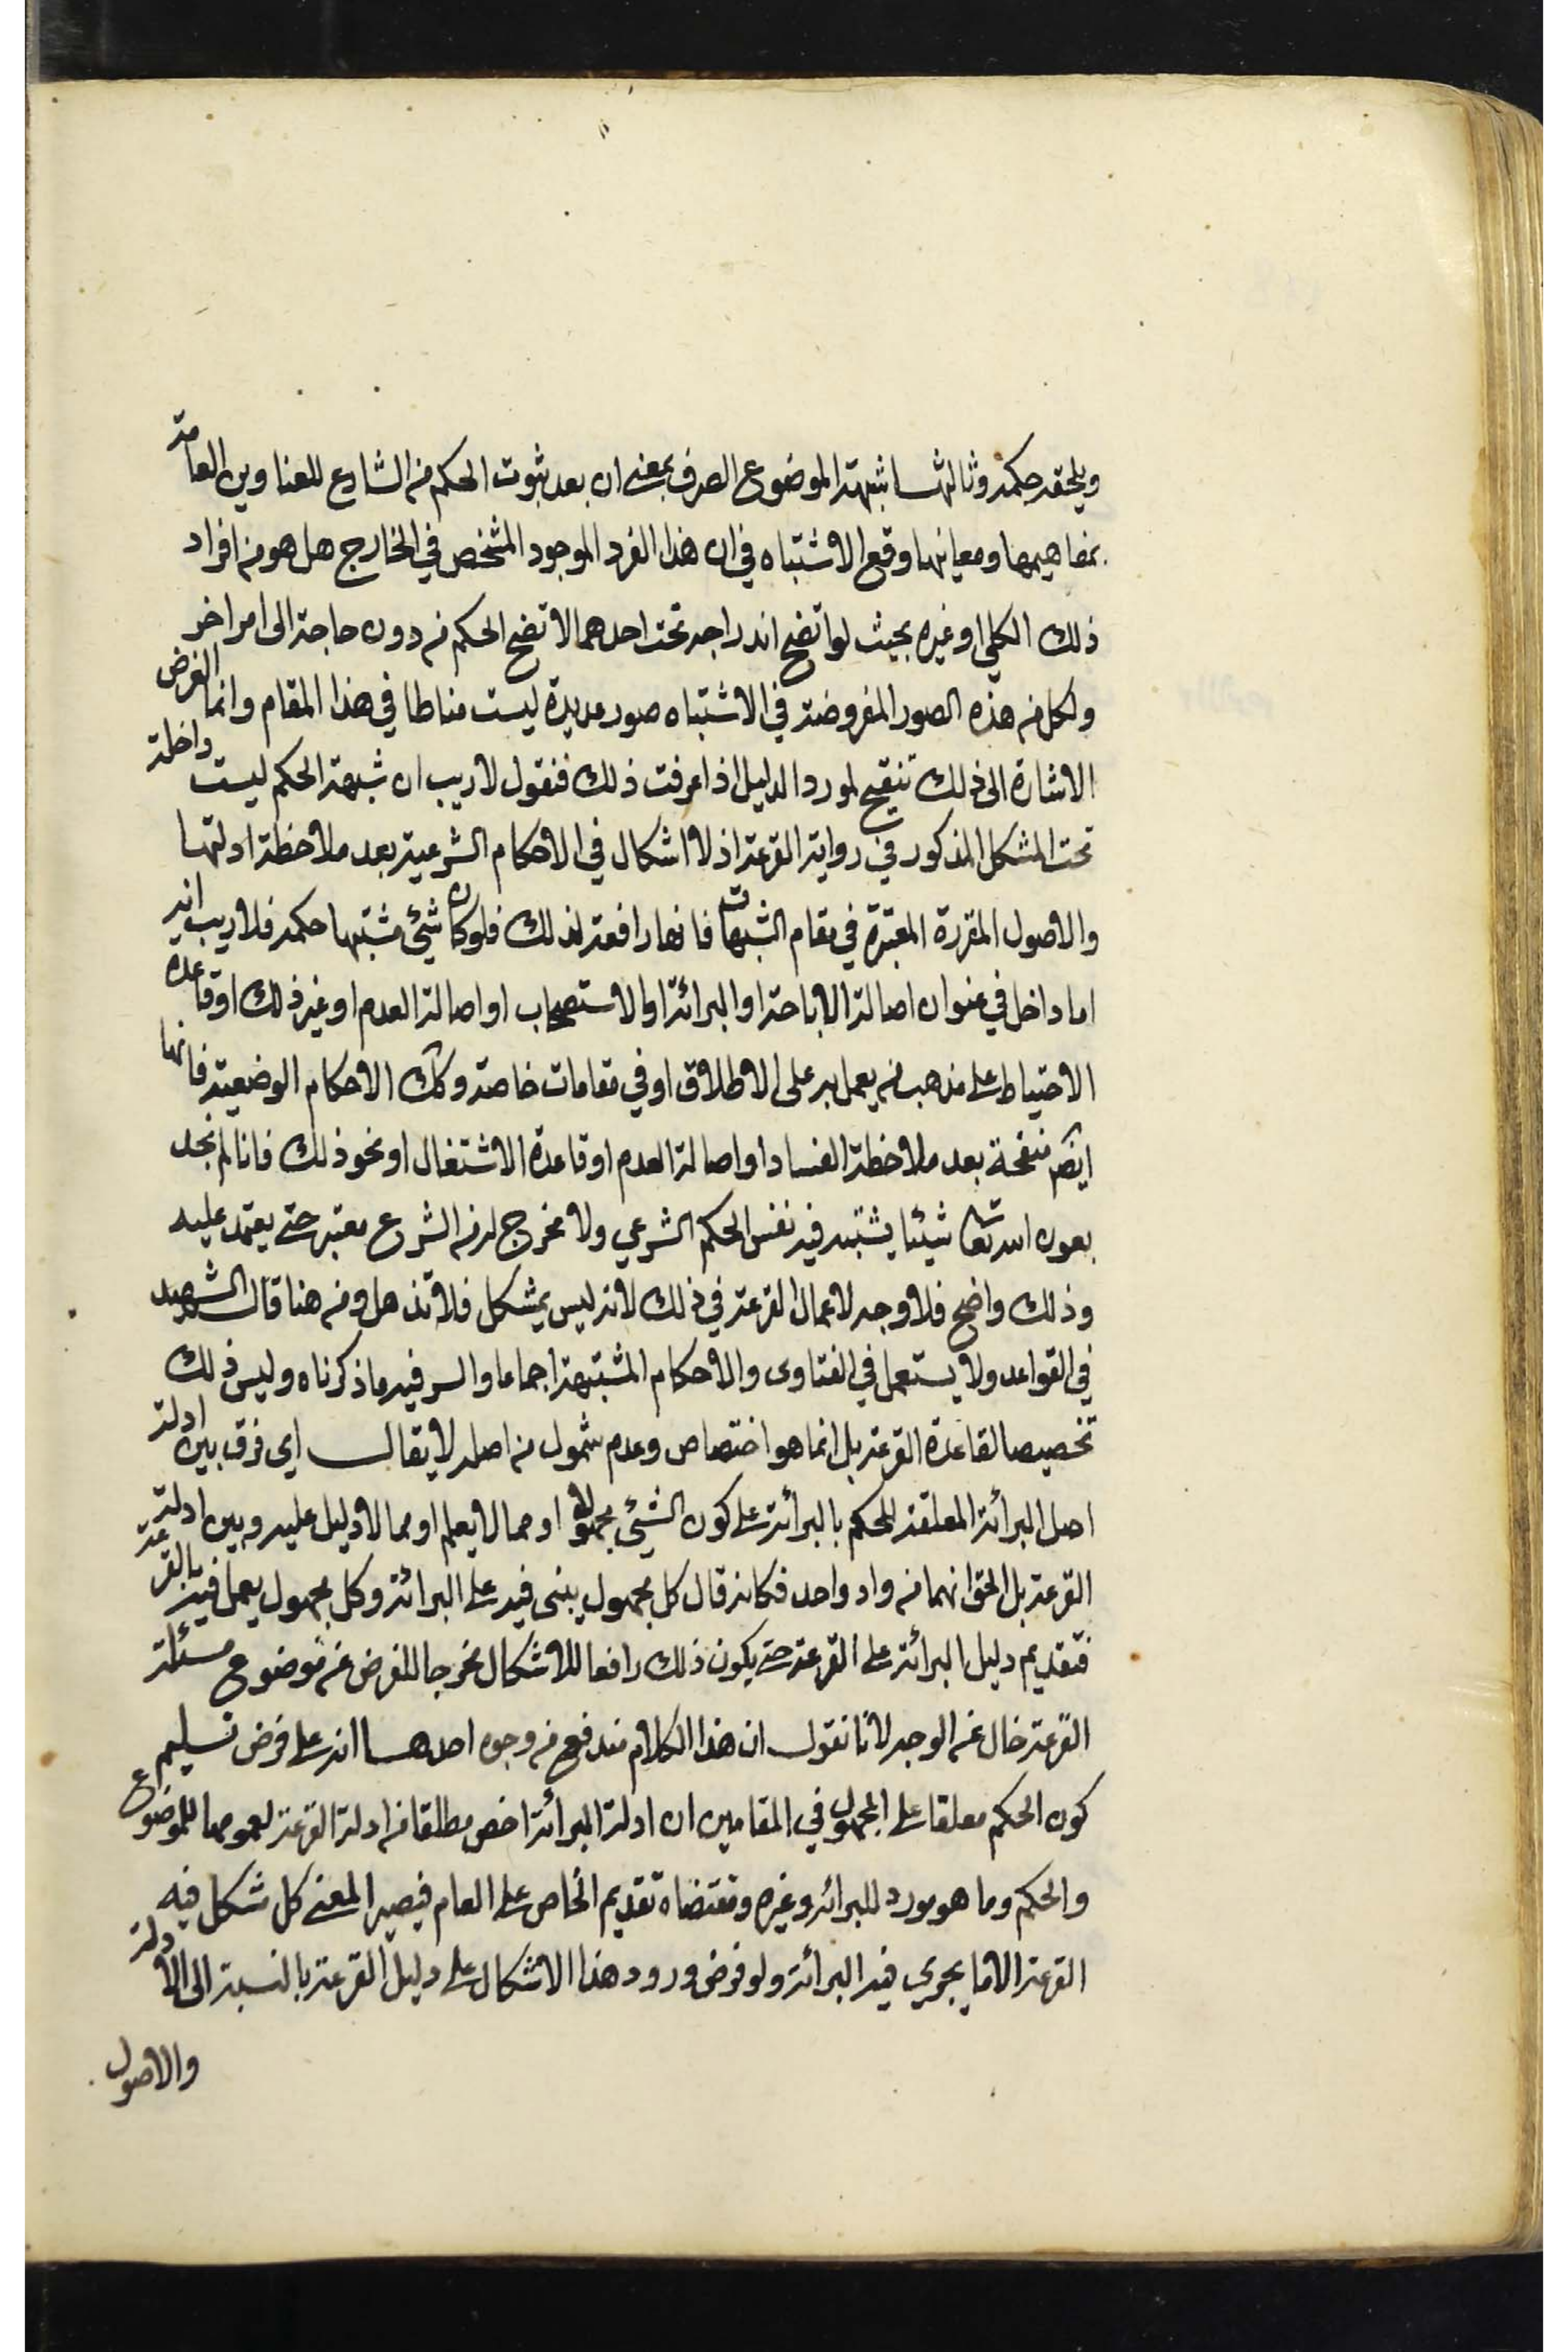 ويلحقه حكمه وثالثها شبهة الموضوع الصرف بمعنى ان بعد ثبوت الحكم من الشارع للعناوين العامة
بمفاهيمها ومعانيها وقع الاشتباه في ان هذا الفرد الموجود المشخص في الخارج هل هو من افراد
ذلك الكلي او غيره بحيث لو اتضح اندراجه تحت احدهما لاتضح الحكم من دون حاجة الى امر اخر
ولكل من هذه الصور المفروضة في الاشتباه صور عديدة ليست مناطا في هذا المقام وانما الغرض
الاشارة الى ذلك تنقيح لمورد الدليل اذا عرفت ذلك فنقول لا ريب ان شبهة الحكم ليست داخلة
تحت المشكل المذكور في رواية القرعة اذ لا اشكال في الاحكام الشرعية بعد ملاحظة ادلتها
والاصول المقررة المعتبرة في مقام الشبهات فانها رافعة لذلك فلو كان شيئ مشتبها حكمه فلا ريب انه
اما داخل في عنوان اصالة الاباحة او البرائة او الاستصحاب او اصالة العدم او غير ذلك او قاعده
الاحتياط على مذهب من يعمل به على الاطلاق او في مقامات خاصة وكك الاحكام الوضعية فانها
ايضم منقحة بعد ملاحظة الفساد او اصالة العدم او قاعدة الاشتغال او نحو ذلك فانا لم نجد
بعون الله تعا شيئا يشتبه فيه نفس الحكم الشرعي ولا مخرج له من الشرع معتبر حتى يعتمد عليه
وذلك واضح فلا وجه لاعمال القرعة في ذلك لانه ليس بمشكل فلا تذهل ومن هنا قال الشهيد
في القواعد ولا يستعمل في الفتاوى والاحكام المشتبهة اجماعا والسر فيه ما ذكرناه وليس ذلك
تخصيصا لقاعدة القرعة بل انما هو اختصاص وعدم شمول من اصله لا يقال اي فرق بين ادلة
اصل البرائة المعلقة للحكم بالبرائة على كون الشيئ مجهولا او مما لا يعلم او مما لا دليل عليه وبين ادلة
القرعة بل الحق انهما من واد واحد فكانه قال كل مجهول يبنى فيه على البرائة وكل مجهول يعمل فيه بالقرعة
فتقديم دليل البرائة على القرعة حتى يكون ذلك رافعا للاشكال مخرجا للفرض عن موضوع مسئلة
القرعة خال عن الوجه لانا نقول ان هذا الكلام مندفع من وجوه احدها انه على فرض تسليم
كون الحكم معلقا على المجهول في المقامين ان ادلة البرائة اخص مطلقا من ادلة القرعة لعمومها للموضوع
والحكم وما هو مورد للبرائة وغيره ومقتضاه تقديم الخاص على العام فيصير المعنى كل مشكل فيه
القرعة الا ما يجري فيه البرائة ولو فرض ورود هذا الاشكال على دليل القرعة بالنسبة الى الادلة
والاصول